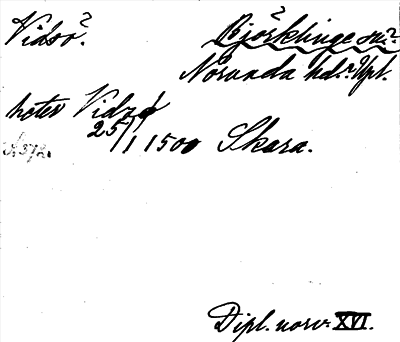 Vidsö? Björklinge sn?
Norunda hd. Upl.
heter Vidzø
25/1 1500 Skara.
A 372.
Dipl. norv. XVI.